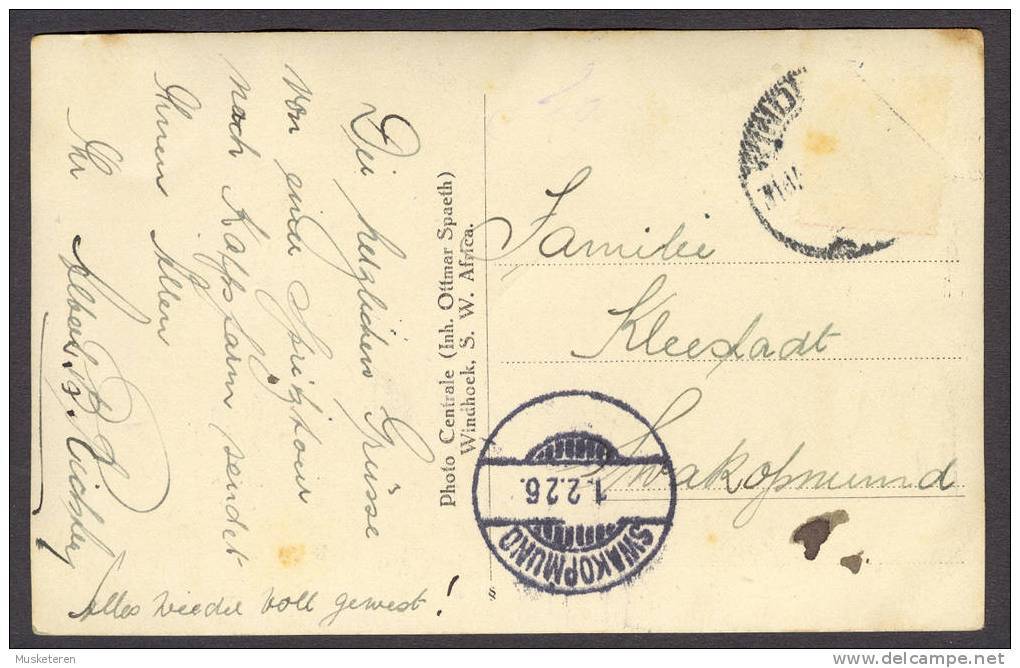 Die herzlichen Grüsse
von einer
nach Kaffsfarm sendet
Ihnen Allen
Ihr Albert
Alles wieder voll gewest!
Photo Centrale (Inh. Ottmar Spaeth)
Windhoek, S. W. Africa.
Familie
Kleestadt
Swakopmund
1.2.26.
SWAKOPMUND
Musketeren
delcampe.net